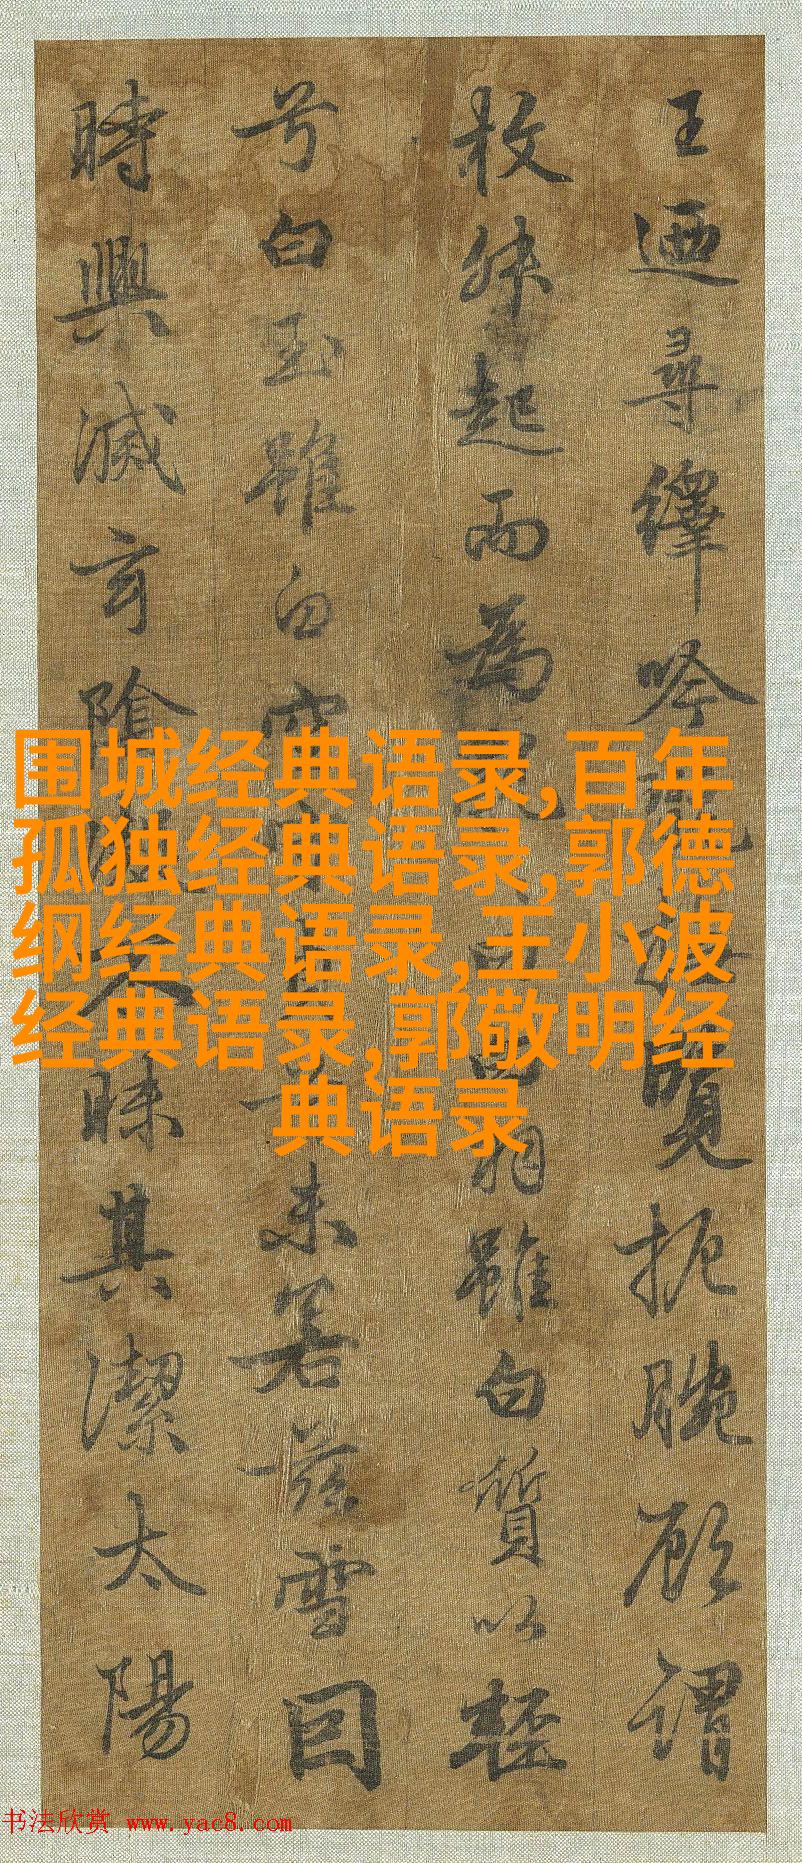 王迺尋繹吟覽扼腕顧謂
枚叔起而為羽雖白質以輕
兮白玉雖白未若茲雪因
時興滅玄陰不昧其潔太陽
围城经典语录,百年
孤独经典语录,郭德
纲经典语录,王小波
经典语录,郭敬明经
典语录
书法欣赏 www.yac8.com